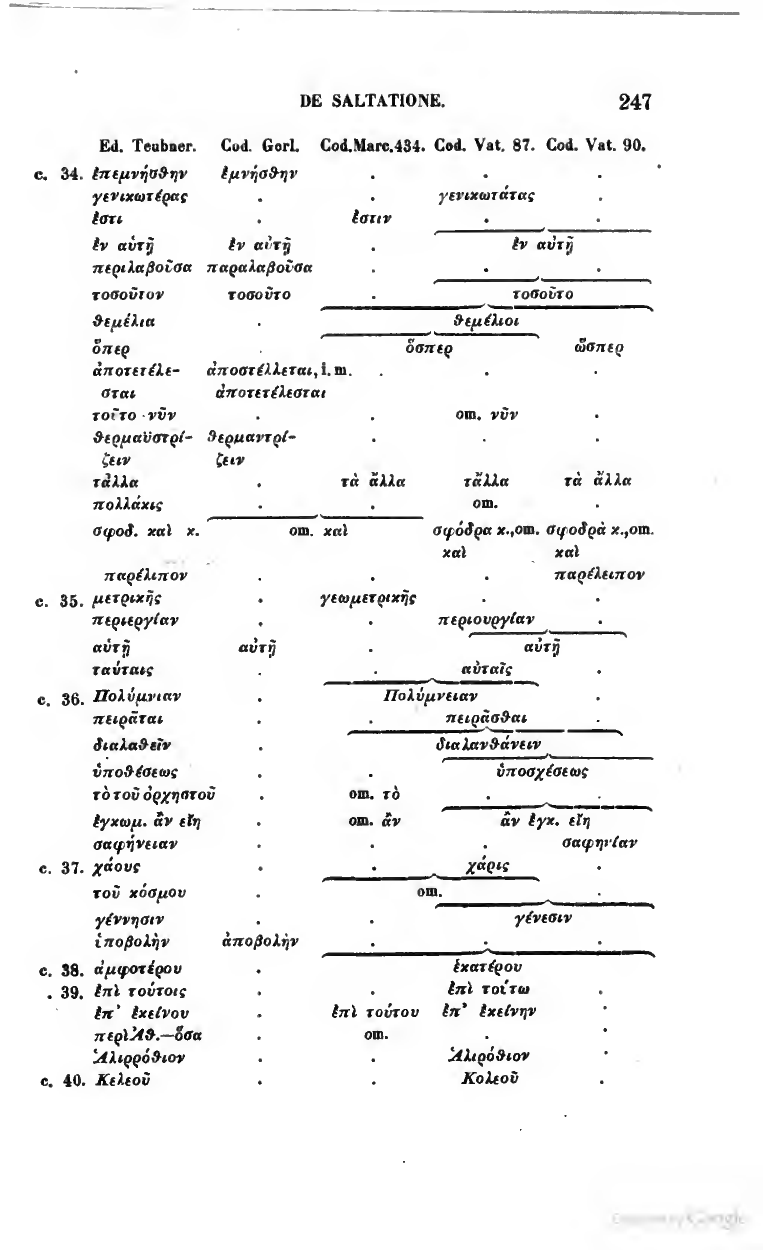 DE SALTATIONE. 247
Ed. Teubner. Cod. Gorl. Cod. Marc. 434. Cod. Vat. 87. Cod. Vat. 90.
c. 34. ἐπεμνήσθην ἐμνήσθην . . .
γενικωτέρας . . γενικωτάτας .
ἐστι . ἐστιν . .
ἐν αὑτῇ ἐν αὐτῇ . ἐν αὐτῇ
περιλαβοῦσα παραλαβοῦσα . . .
τοσοῦτον τοσοῦτο . τοσοῦτο
θεμέλια . θεμέλιοι
ὅπερ . ὅσπερ ὥσπερ
ἀποτετέλε- ἀποστέλλεται, i. m. . . .
σται ἀποτετέλεσται
τοῦτο νῦν . . om. νῦν .
θερμαϋστρί- θερμαντρί- . . .
ζειν ζειν
τἆλλα . τὰ ἄλλα τἄλλα τὰ ἄλλα
πολλάκις . . om. .
σφοδ. καὶ κ. om. καὶ σφόδρα κ., om. σφοδρὰ κ., om.
καὶ καὶ
παρέλιπον . . . παρέλειπον
c. 35. μετρικῆς . γεωμετρικῆς . .
περιεργίαν . . περιουργίαν .
αὑτῇ αὐτῇ αὐτῇ
ταύταις . . αὐταῖς .
c. 36. Πολύμνιαν . Πολύμνειαν .
πειρᾶται . . πειρᾶσθαι .
διαλαθεῖν . διαλανθάνειν
ὑποθέσεως . . ὑποσχέσεως
τὸ τοῦ ὀρχηστοῦ . om. τὸ . .
ἐγκωμ. ἂν εἴη . om. ἂν ἂν ἐγκ. εἴη
σαφήνειαν . . . σαφηνίαν
c. 37. χάους . . χάρις .
τοῦ κόσμου . om. .
γέννησιν . . γένεσιν
ὑποβολὴν ἀποβολὴν . . .
c. 38. ἀμφοτέρου . ἑκατέρου
. 39. ἐπὶ τούτοις . . ἐπὶ τούτω .
ἐπ' ἐκείνου . ἐπὶ τούτου ἐπ' ἐκείνην .
περὶ Ἀθ.—ὅσα . om. . .
Ἁλιρρόθιον . . Ἁλιρόθιον .
c. 40. Κελεοῦ . . Κολεοῦ .